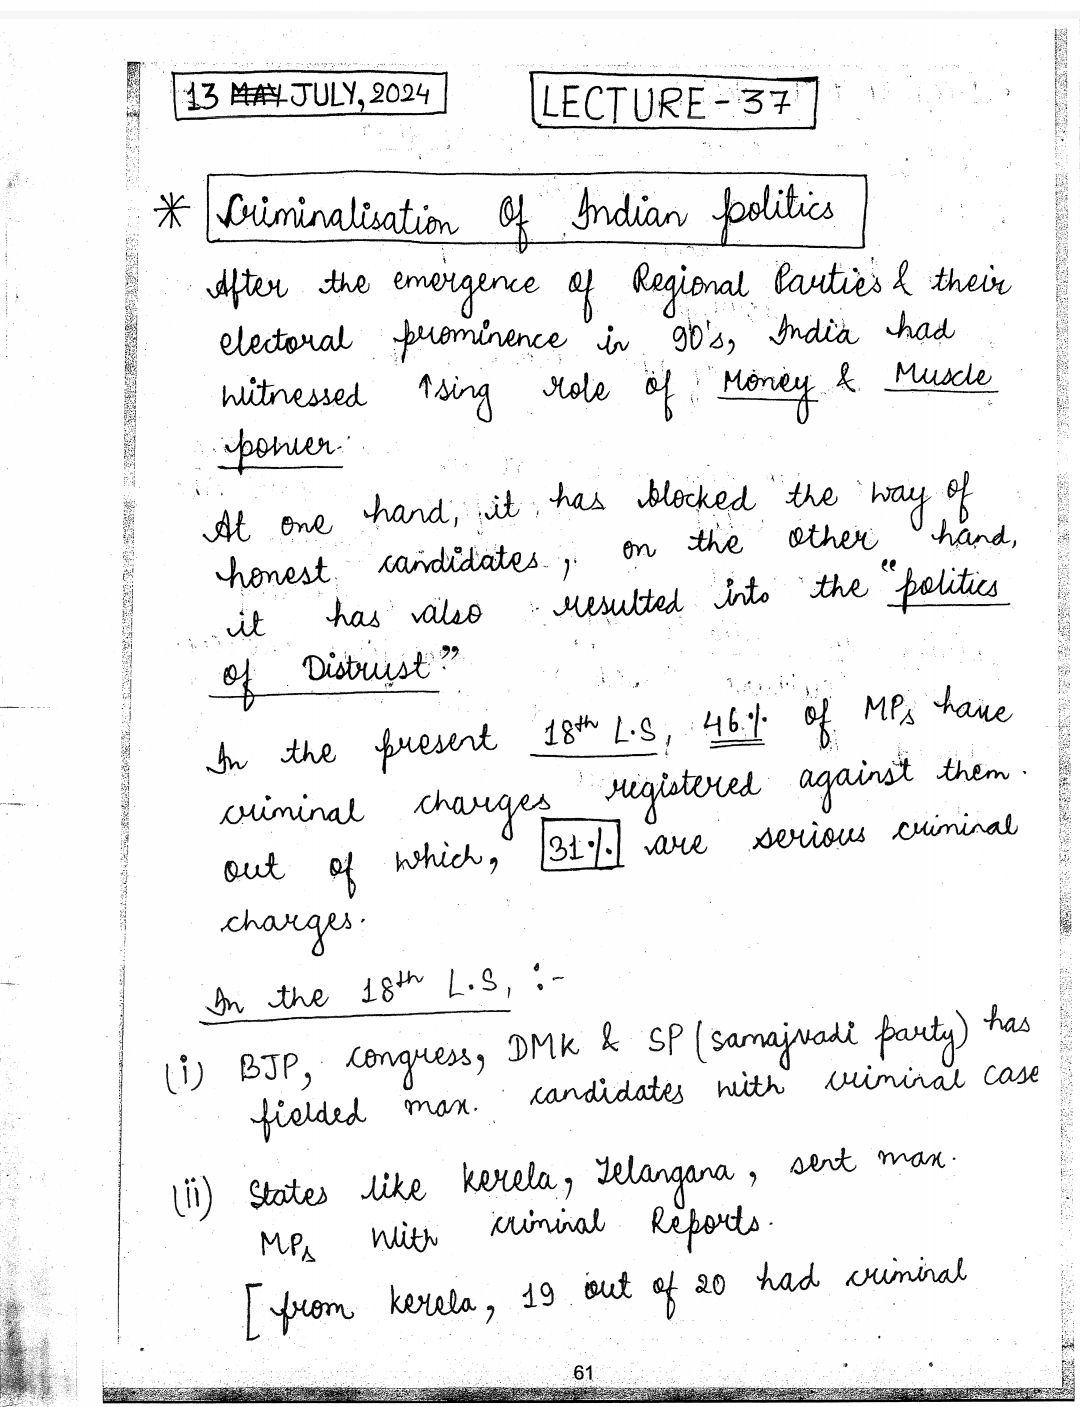 13 MAY JULY, 2024
LECTURE - 37
* Criminalisation Of Indian politics
After the emergence of Regional Parties & their
electoral prominence in 90's, India had
witnessed ↑sing role of Money & Muscle
power.
At one hand, it has blocked the way of
honest candidates, on the other hand,
it has also resulted into the "politics
of Distrust"
In the present 18th L.S, 46% of MPs have
criminal charges registered against them.
out of which, 31% are serious criminal
charges.
In the 18th L.S, :-
(i) BJP, congress, DMK & SP (samajvadi party) has
fielded max. candidates with criminal case
(ii) States like kerela, Telangana, sent max.
MPs with criminal Reports.
[from kerela, 19 out of 20 had criminal
61